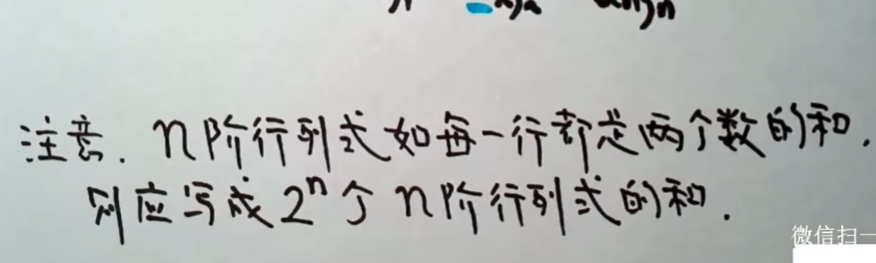 注意. n阶行列式如每一行都是两个数的和.
则应写成2ⁿ个n阶行列式的和.
微信扫一